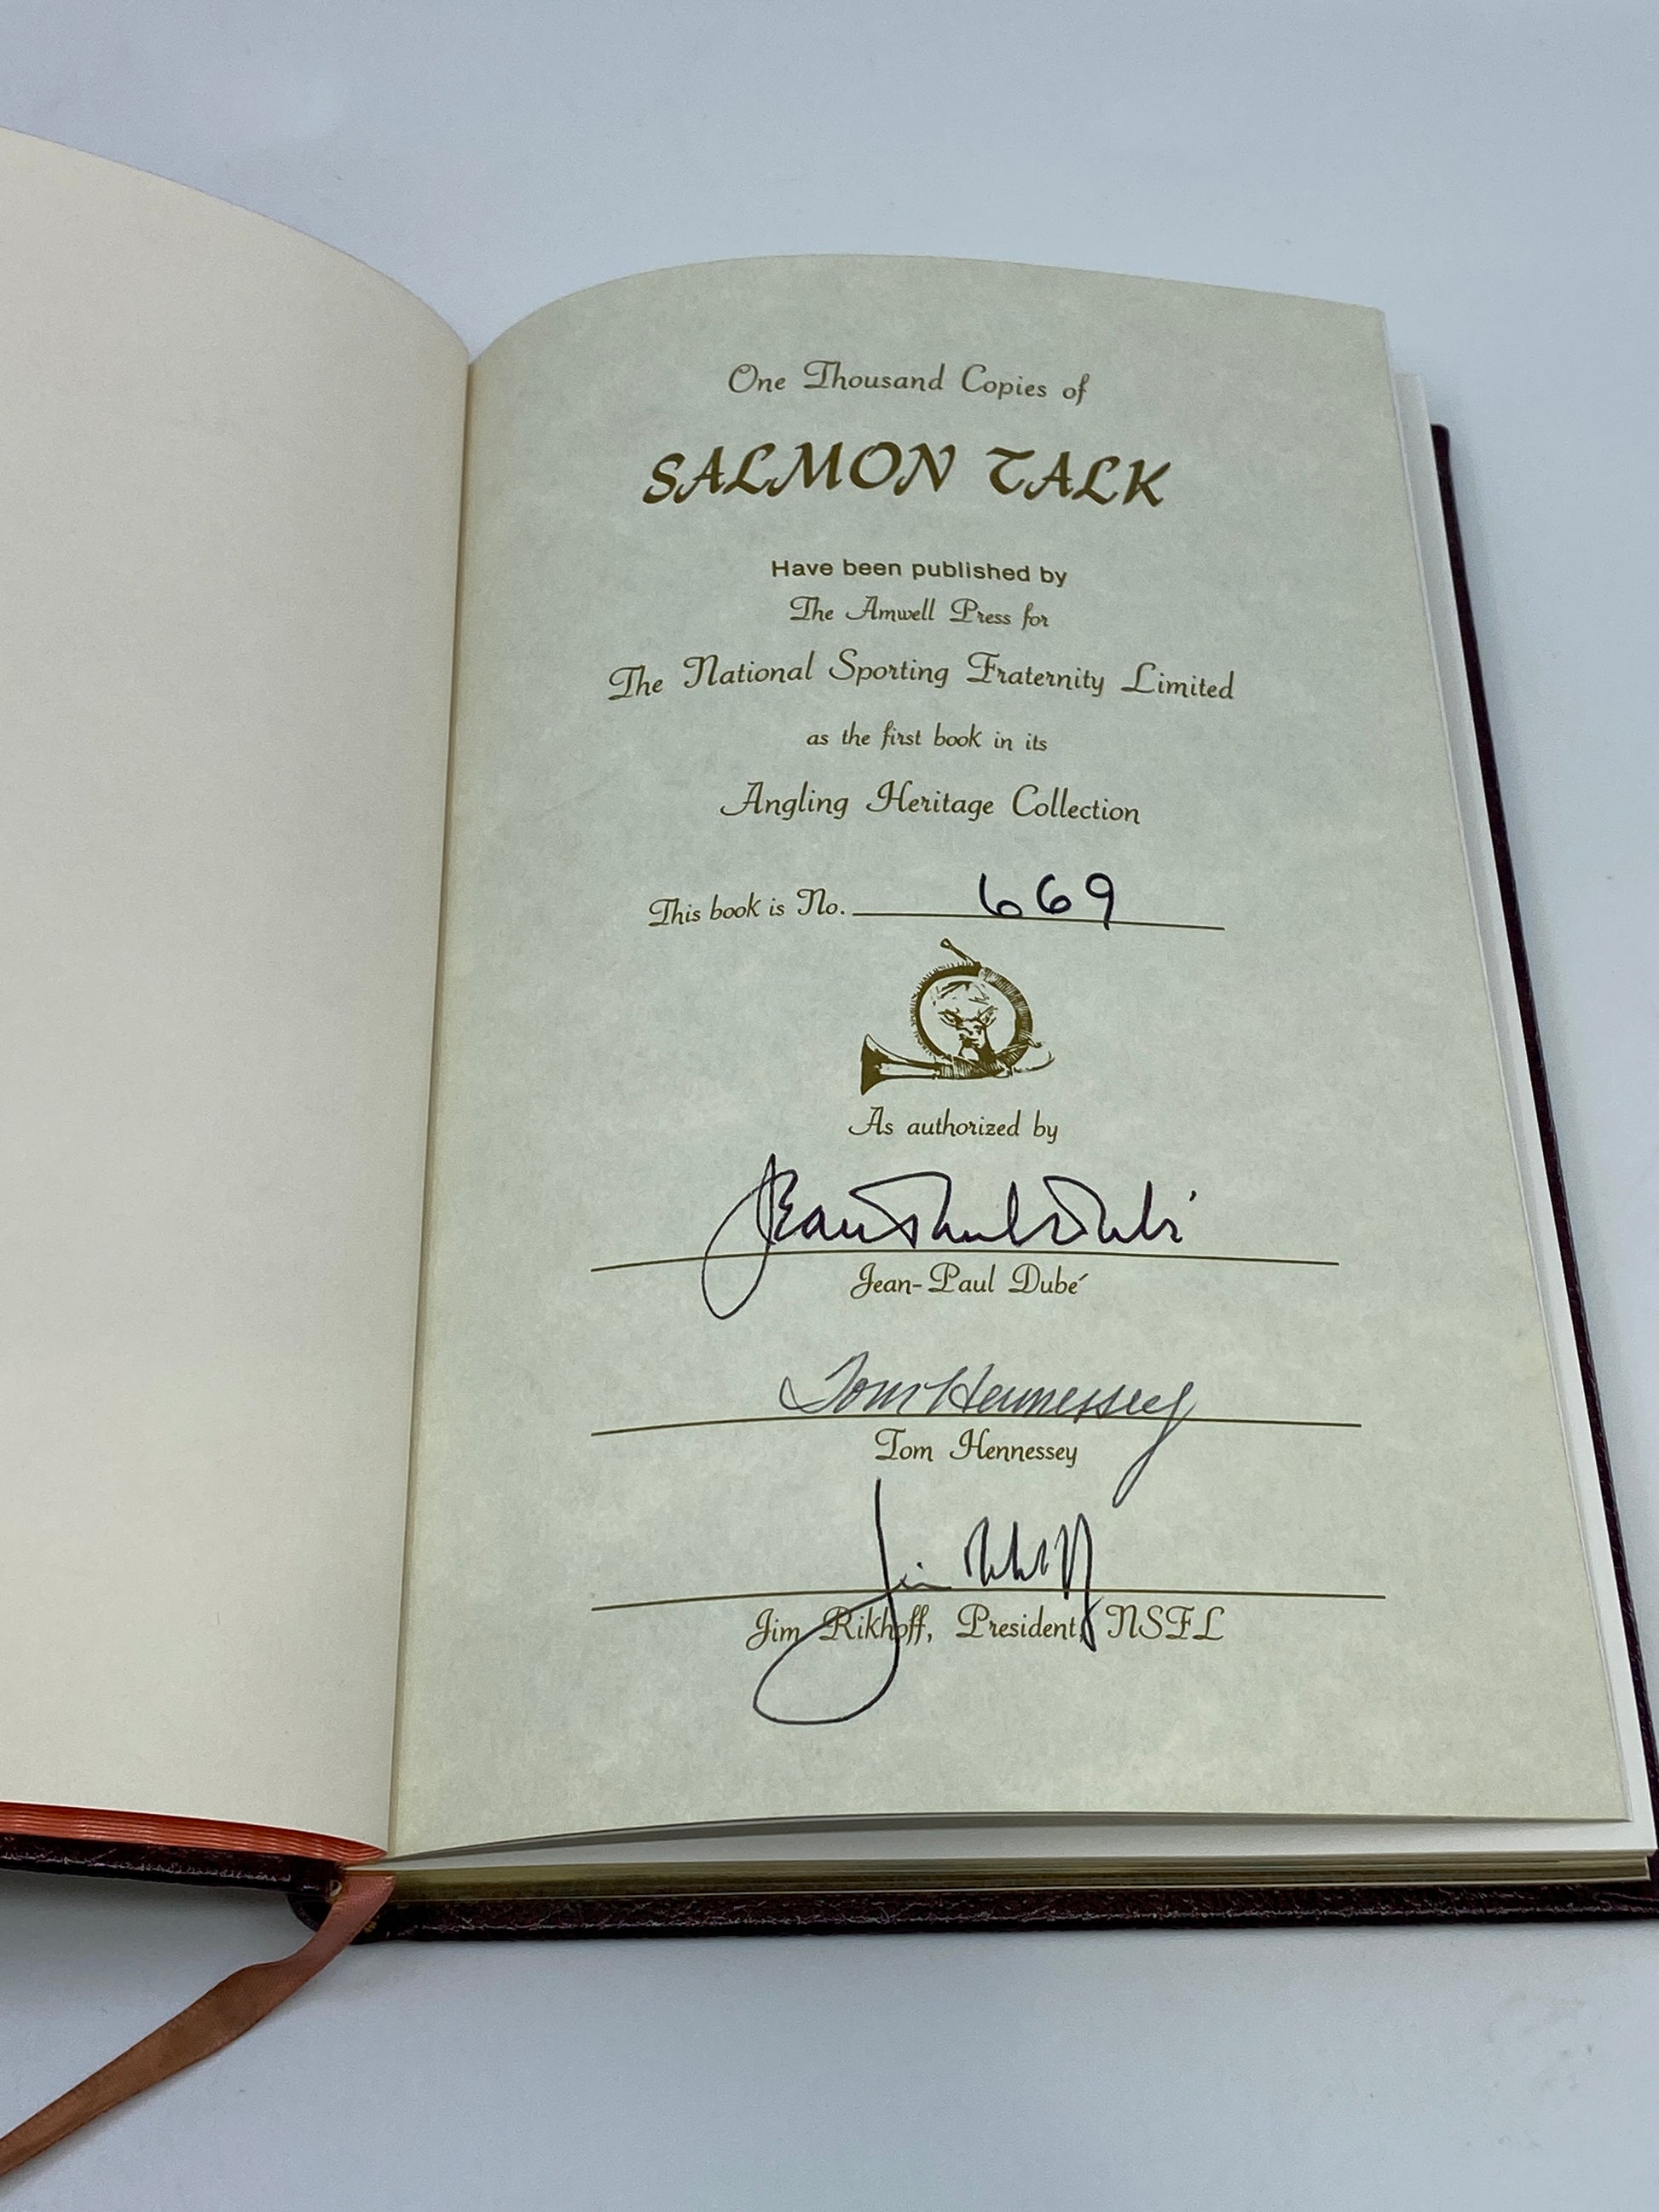 One Thousand Copies of
SALMON TALK
Have been published by
The Amwell Press for
The National Sporting Fraternity Limited
as the first book in its
Angling Heritage Collection
This book is No. 669
As authorized by
Jean-Paul Dubé
Jean-Paul Dubé
Tom Hennessey
Tom Hennessey
Jim Rikhoff
Jim Rikhoff, President, NSFL